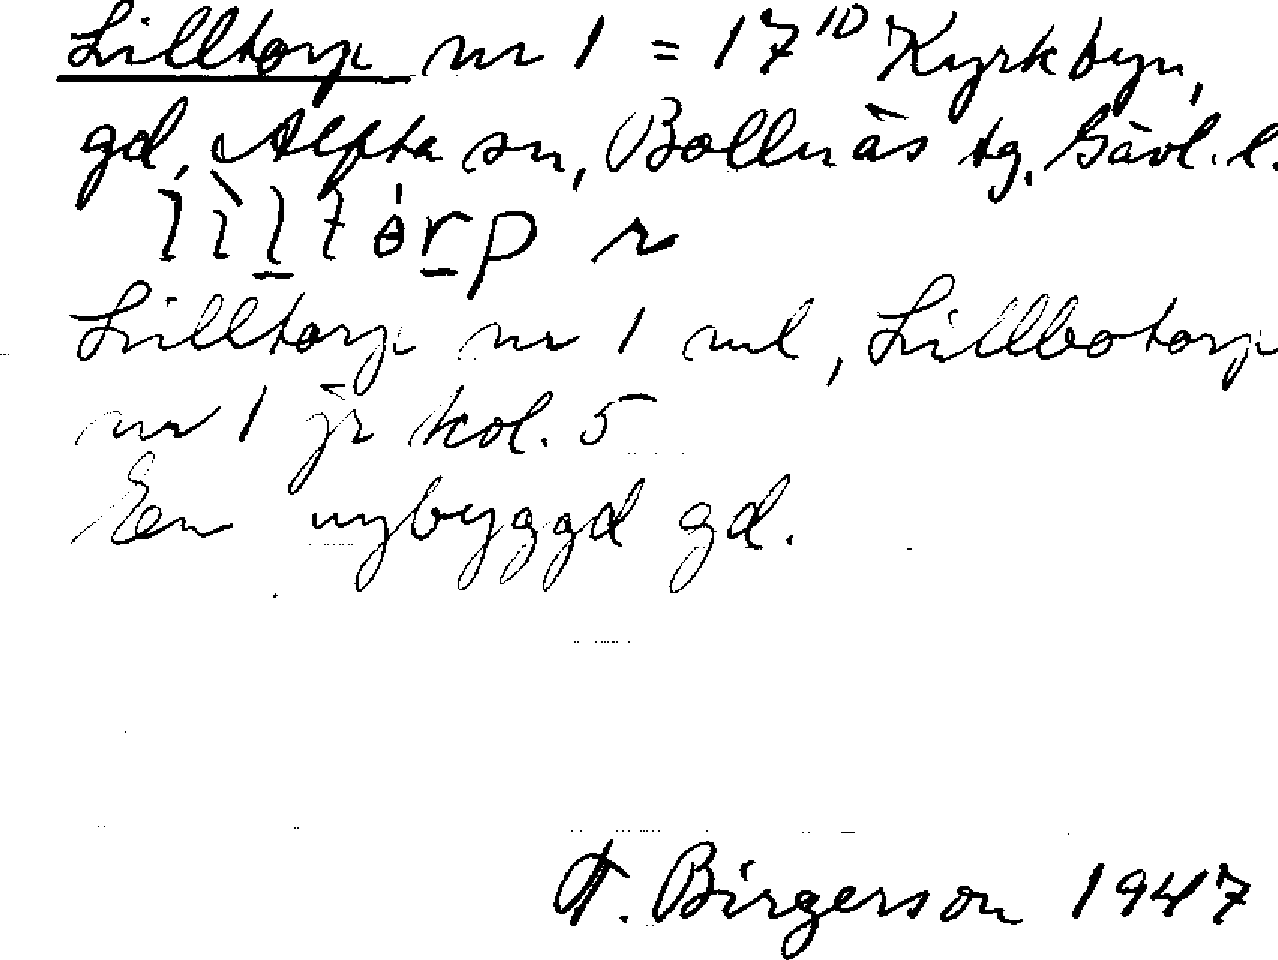 Lilltorp nr 1 = 17¹⁰ Kyrkbyn,
gd, Alfta sn, Bollnäs tg, Gävl. l.
lìltórp r
Lilltorp nr 1 ml, Lillbotorp
nr 1 jr kol. 5
En nybyggd gd.
Birgerson 1947